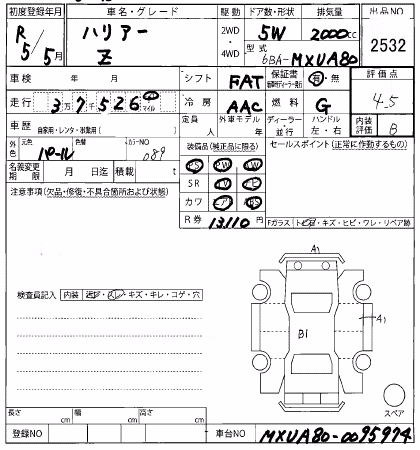 初度登録年月 車名・グレード 駆動 ドア数・形状 排気量 出品NO
R 5/5月 ハリアー Z 2WD・4WD 5W 2000cc 2532
型式 6BA-MXUA80
車検 年 月 シフト FAT 保証書 有・無 評価点
走行 3万7千526 km マイル 冷房 AAC 燃料 G 4.5
車歴 自家用・レンタ・事業用( ) 定員 人 外車モデル 年 ディーラー・並行 ハンドル 左・右 内装評価 B
外色 元色 パール 色替 カラーNO 089 装備品(純正品に限る) セールスポイント(正常に作動するもの)
名義変更期限 月 日迄 積載 t PS PW AW
注意事項(欠品・修復・不具合箇所および状態) SR
カワ エアB ABS
R券 13,110円 Fガラス
検査員記入 内装 ・キズ・キレ・コゲ・穴
A1
A1
B1
スペア
長さ cm 幅 cm 高さ cm
登録NO 車台NO MXUA80-0095974